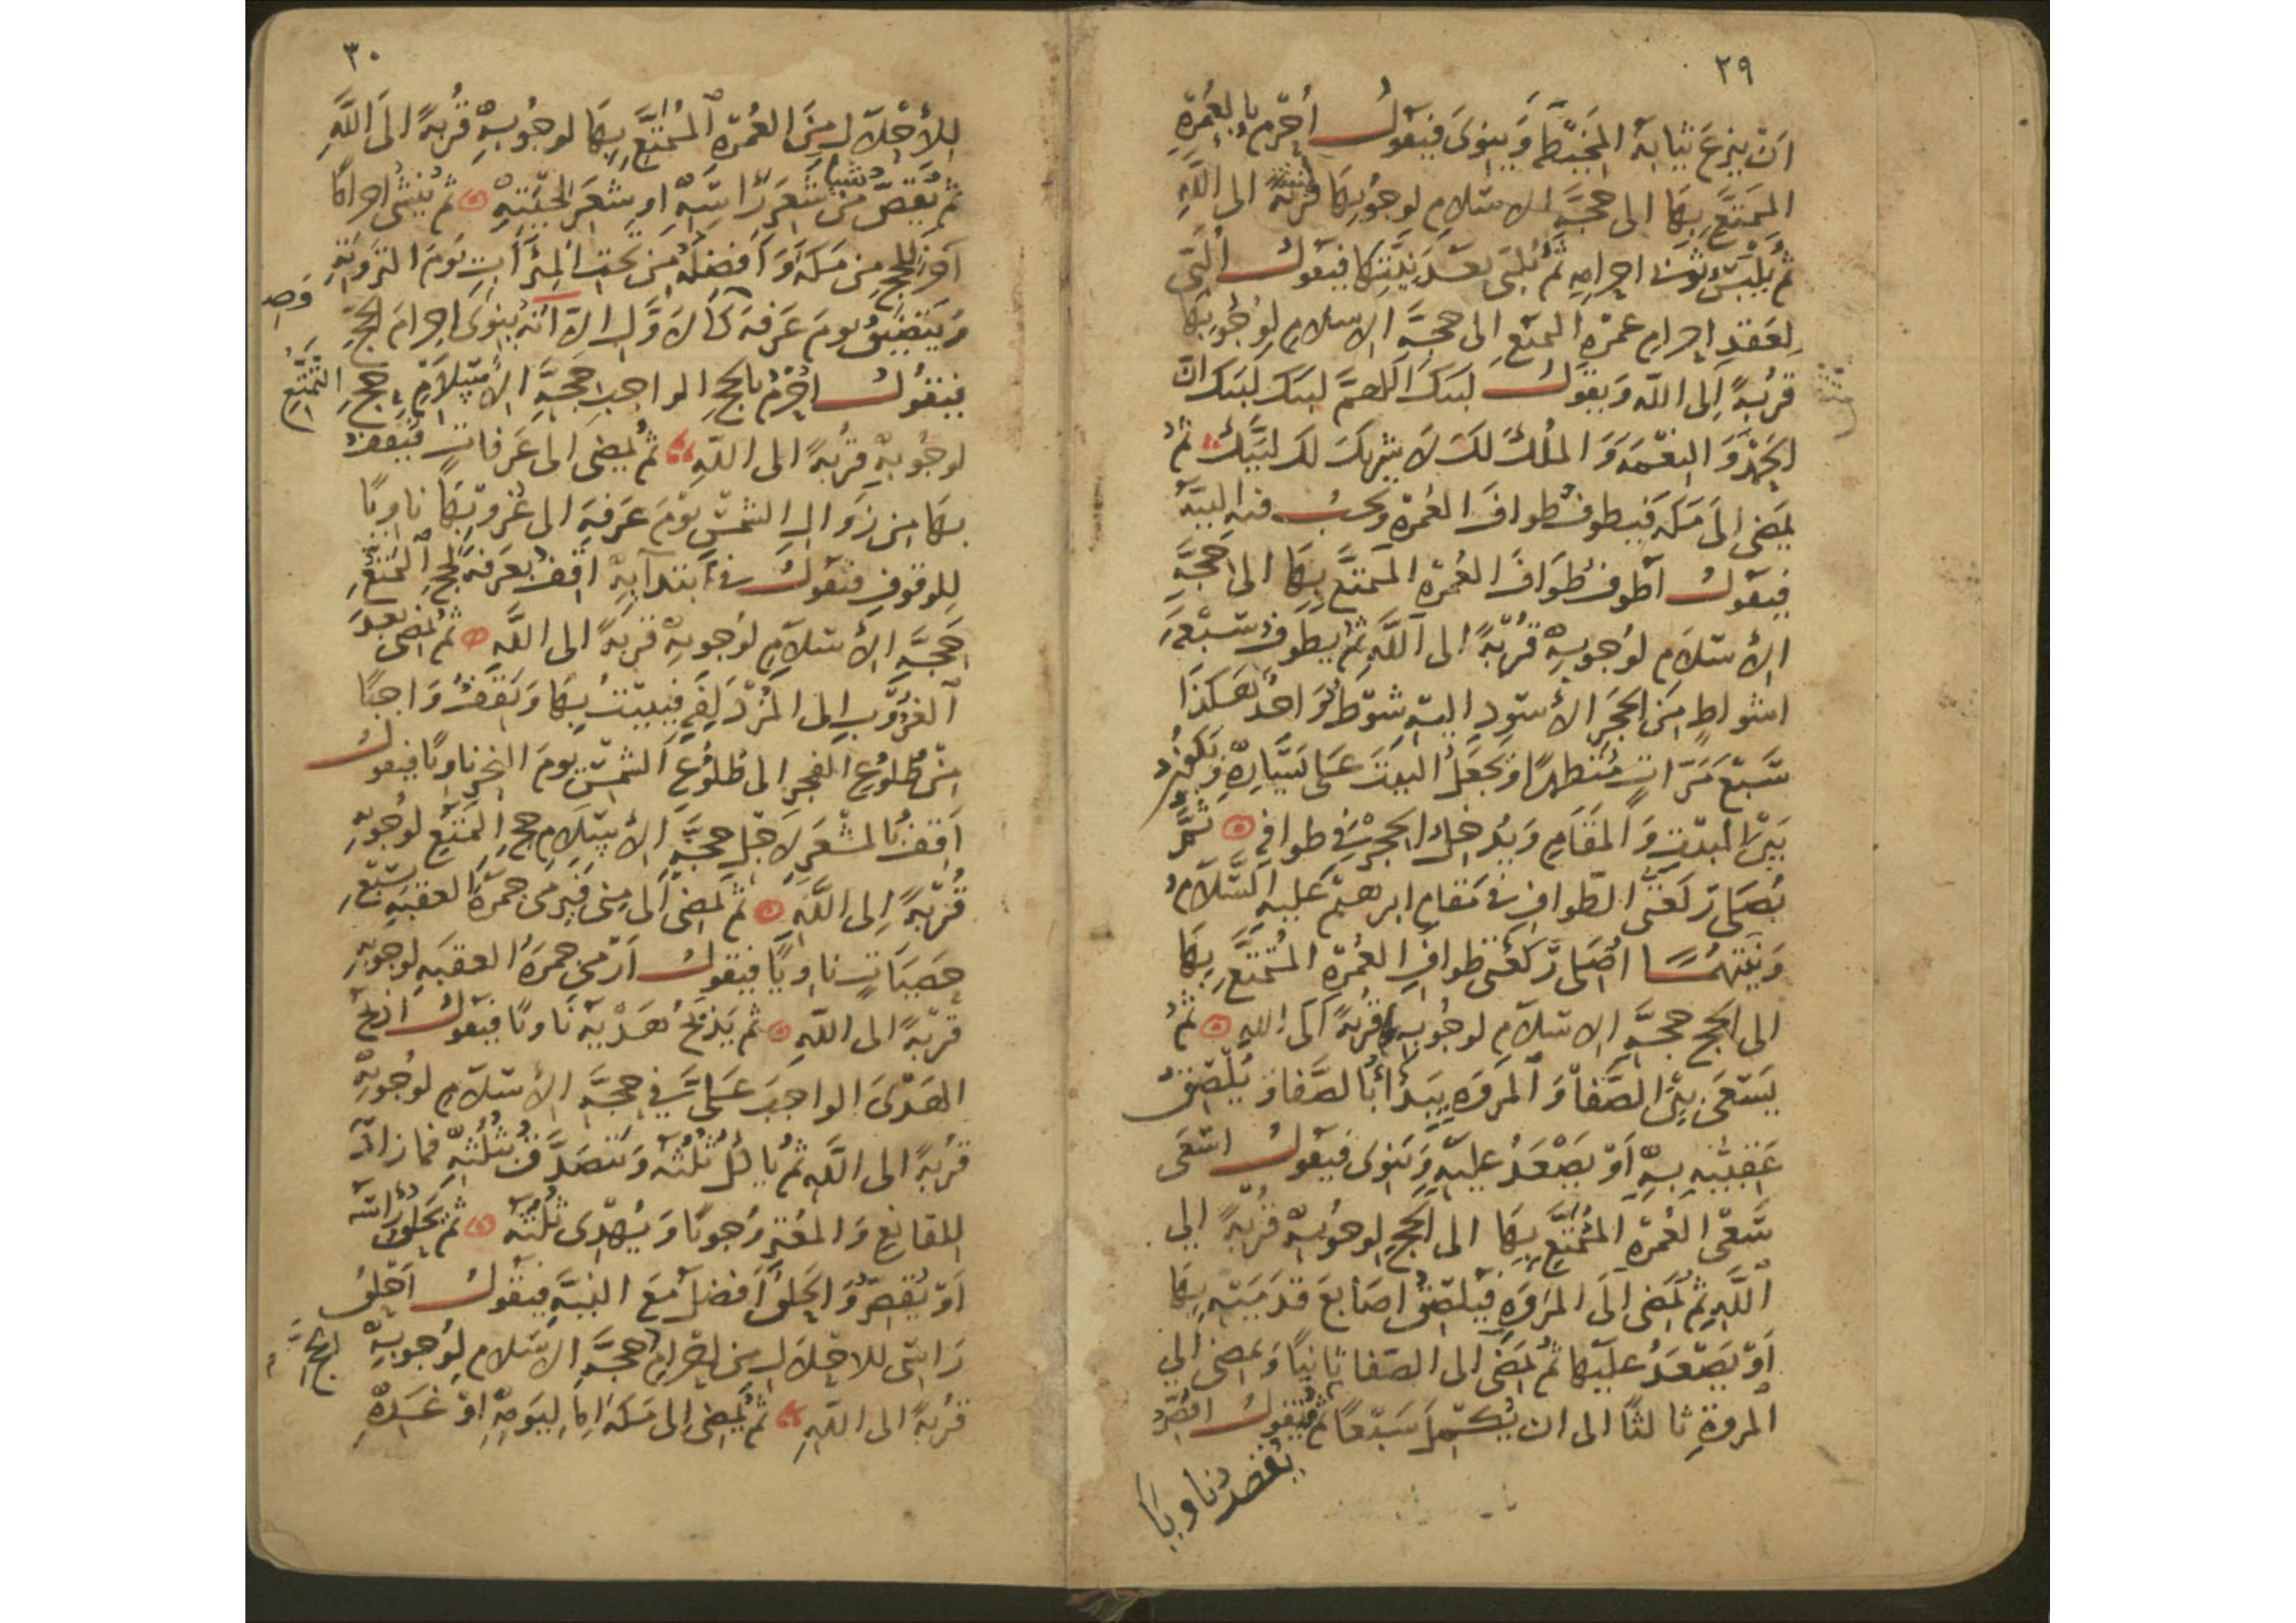 ٢٩
ان ينزع ثيابه المخيطة وينوى فيقول أحرم بالعمرة
المتمتع بها الى حجة الاسلام لوجوبها قربة الى الله
ثم يلبس ثوبى احرامه ثم يلبى بعد نيتها فيقول ألبى
لعقد احرام عمرة التمتع الى حجة الاسلام لوجوبها
قربة إلى الله ويقول لبيك اللهم لبيك لبيك ان
الحمد والنعمة والملك لك لا شريك لك لبيك ثم
يمضى الى مكة فيطوف طواف العمرة ويجب فيه النية
فيقول أطوف طواف العمرة المتمتع بها الى حجة
الأسلام لوجوبه قربة الى الله ثم يطوف سبعة
اشواط من الحجر الأسود اليه شوط واحد هكذا
سبع مرات متطهرا ويجعل البيت على يساره ويكون
بين البيت والمقام ويدخل الحجر في طوافه ثم
يصلى ركعتى الطواف فى مقام ابرهيم عليه السلام
ونيتهما اصلى ركعتى طواف العمرة المتمتع بها
الى الحج حجة الاسلام لوجوبهما قربة الى الله ثم
يسعى بين الصفا والمروه يبدأ بالصفا ويلصق
عقبيه به أو يصعد عليه وينوى فيقول اسعى
سعى العمرة المتمتع بها الى الحج لوجوبه قربة إلى
الله ثم يمضى الى المروه فيلصق اصابع قدميه بها
أو يصعد عليها ثم يمضى الى الصفا ثانيا ويمضى إلى
المروة ثالثا الى ان يكتمل سبعا ثم فيقول اقصر
يقصر ناويا
٣٠
للأحلال من العمرة المتمتع بها لوجوبه قربة الى الله
ثم يقص شيئا من شعر راسه او شعر لحيته ثم ينشى احراما
آخر للحج من مكة وأفضله من تحت الميزاب يوم التروية
ويتضيق يوم عرفة كالاول الا انه ينوى احرام الحج
فيقول احرم بالحج الواجب حجة الأسلام حج التمتع
لوجوبه قربة الى الله ثم يمضى الى عرفات فيقف
بها من زوال الشمس يوم عرفة الى غروبها ناويا
للوقوف فيقول فى ابتدآيه اقف بعرفة لحج التمتع
حجة الأسلام لوجوبه قربة الى الله ثم يمضى بعد
الغروب إلى المزدلفة فيبيت بها ويقف واجبا
من طلوع الفجر الى طلوع الشمس يوم النحر ناويا فيقول
اقف بالمشعر لاجل حجة الأسلام حج التمتع لوجوبه
قربة إلى الله ثم يمضى الى منى فيرمى جمرة العقبة بسبع
حصيات ناويا فيقول أرمى جمرة العقبه لوجوبه
قربة الى الله ثم يذبح هديه ناويا فيقول اذبح
الهدى الواجب على في حجة الأسلام لوجوبه
قربة الى الله ثم ياكل ثلثه ويتصدق بثلثه فما زاد
للقانع والمعتر وجوبا ويهدى ثلثه ثم يحلق راسه
أو يقصر والحلق أفضل مع النية فيقول أحلق
راسى للاحلال من إحرام حجة الاسلام لوجوبه
قربة الى الله ثم يمضى إلى مكة إما ليومه او غده